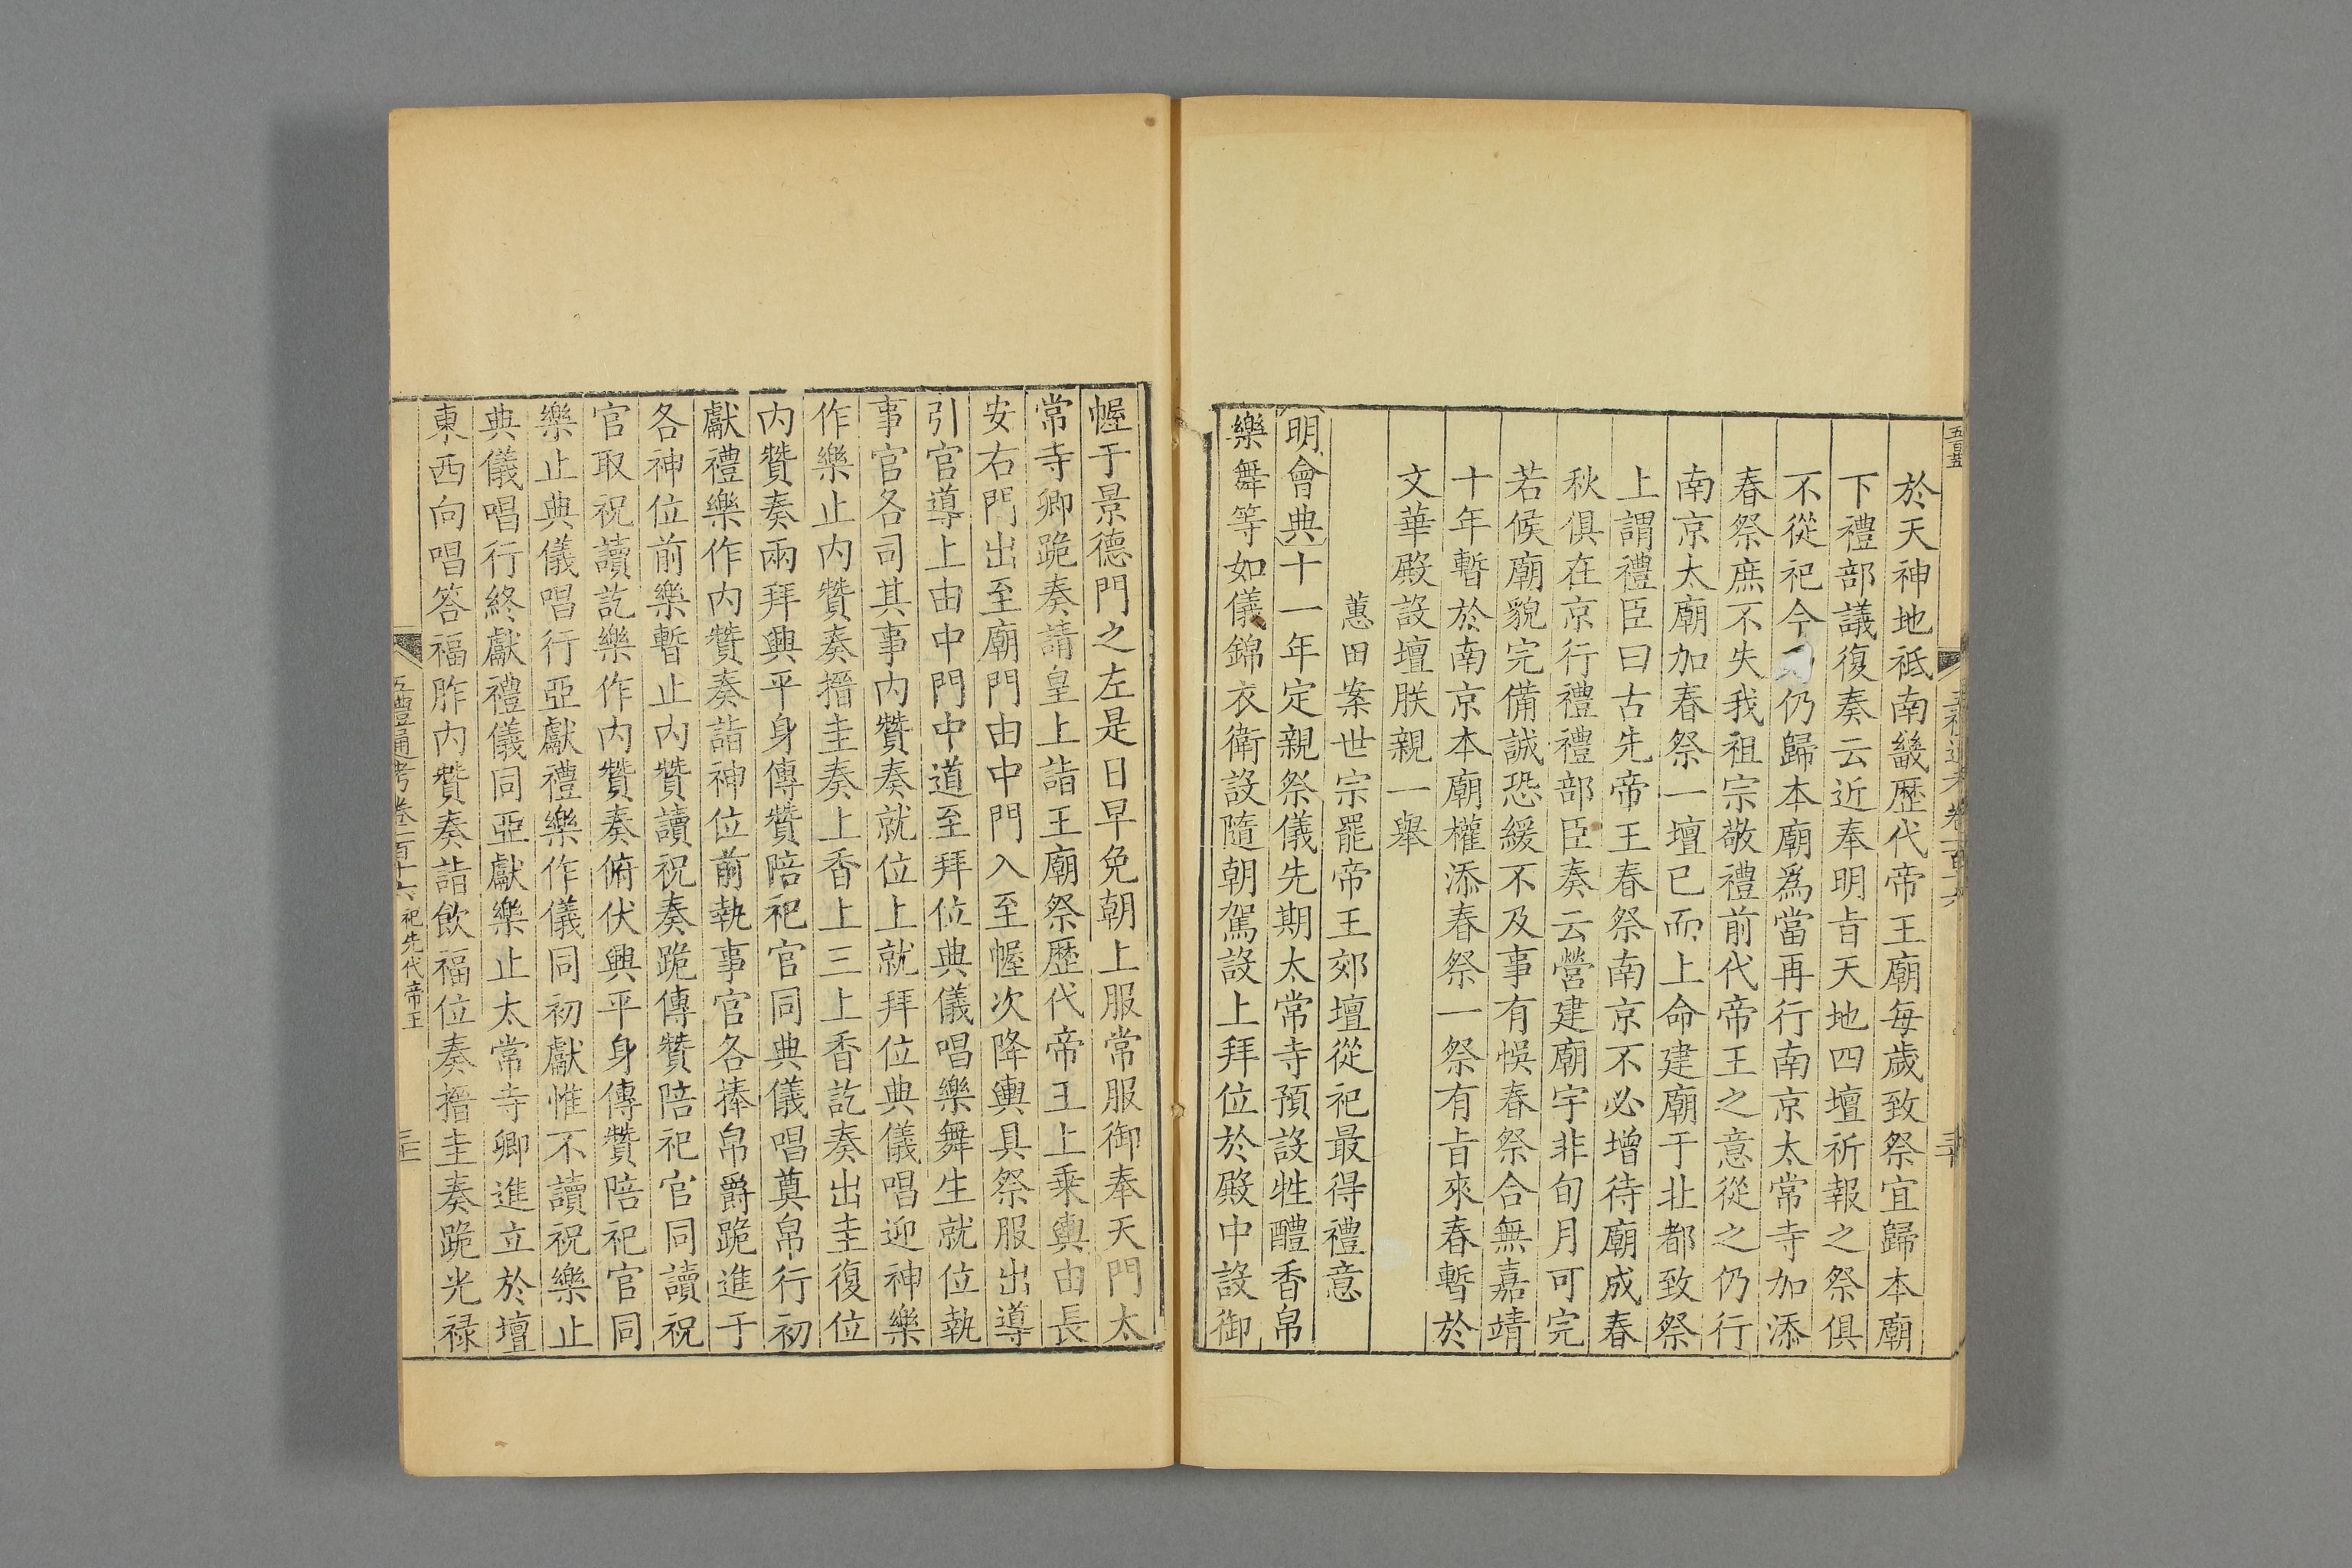 於天神地祗南畿歷代帝王廟每歲致祭宜歸本廟
下禮部議復奏云近奉明㫖天地四壇祈報之祭俱
不從祀今仍歸本廟爲當再行南京太常寺加添
春祭庶不失我祖宗敬禮前代帝王之意從之仍行
南京太廟加春祭一壇已而上命建廟于北都致祭
上謂禮臣曰古先帝王春祭南京不必增待廟成春
秋俱在京行禮禮部臣奏云營建廟宇非旬月可完
若候廟貌完備誠恐緩不及事有悞春祭合無嘉靖
十年暫於南京本廟權添春祭一祭有㫖來春暫於
文華殿設壇朕親一舉
蕙田案世宗罷帝王郊壇從祀最得禮意
明會典十一年定親祭儀先期太常寺預設牲醴香帛
樂舞等如儀錦衣衛設隨朝駕設上拜位於殿中設御
幄于景德門之左是日早免朝上服常服御奉天門太
常寺卿跪奏請皇上詣王廟祭歷代帝王上乘輿由長
安右門出至廟門由中門入至幄次降輿具祭服出導
引官導上由中門中道至拜位典儀唱樂舞生就位執
事官各司其事內贊奏就位上就拜位典儀唱迎神樂
作樂止內贊奏搢圭奏上香上三上香訖奏出圭復位
內贊奏兩拜興平身傳贊陪祀官同典儀唱奠帛行初
獻禮樂作內贊奏詣神位前執事官各捧帛爵跪進于
各神位前樂暫止內贊讀祝奏跪傳贊陪祀官同讀祝
官取祝讀訖樂作內贊奏俯伏興平身傳贊陪祀官同
樂止典儀唱行亞獻禮樂作儀同初獻惟不讀祝樂止
典儀唱行終獻禮儀同亞獻樂止太常寺卿進立於壇
東西向唱答福胙內贊奏詣飲福位奏搢圭奏跪光祿
五禮通考卷一百十六 祀先代帝王